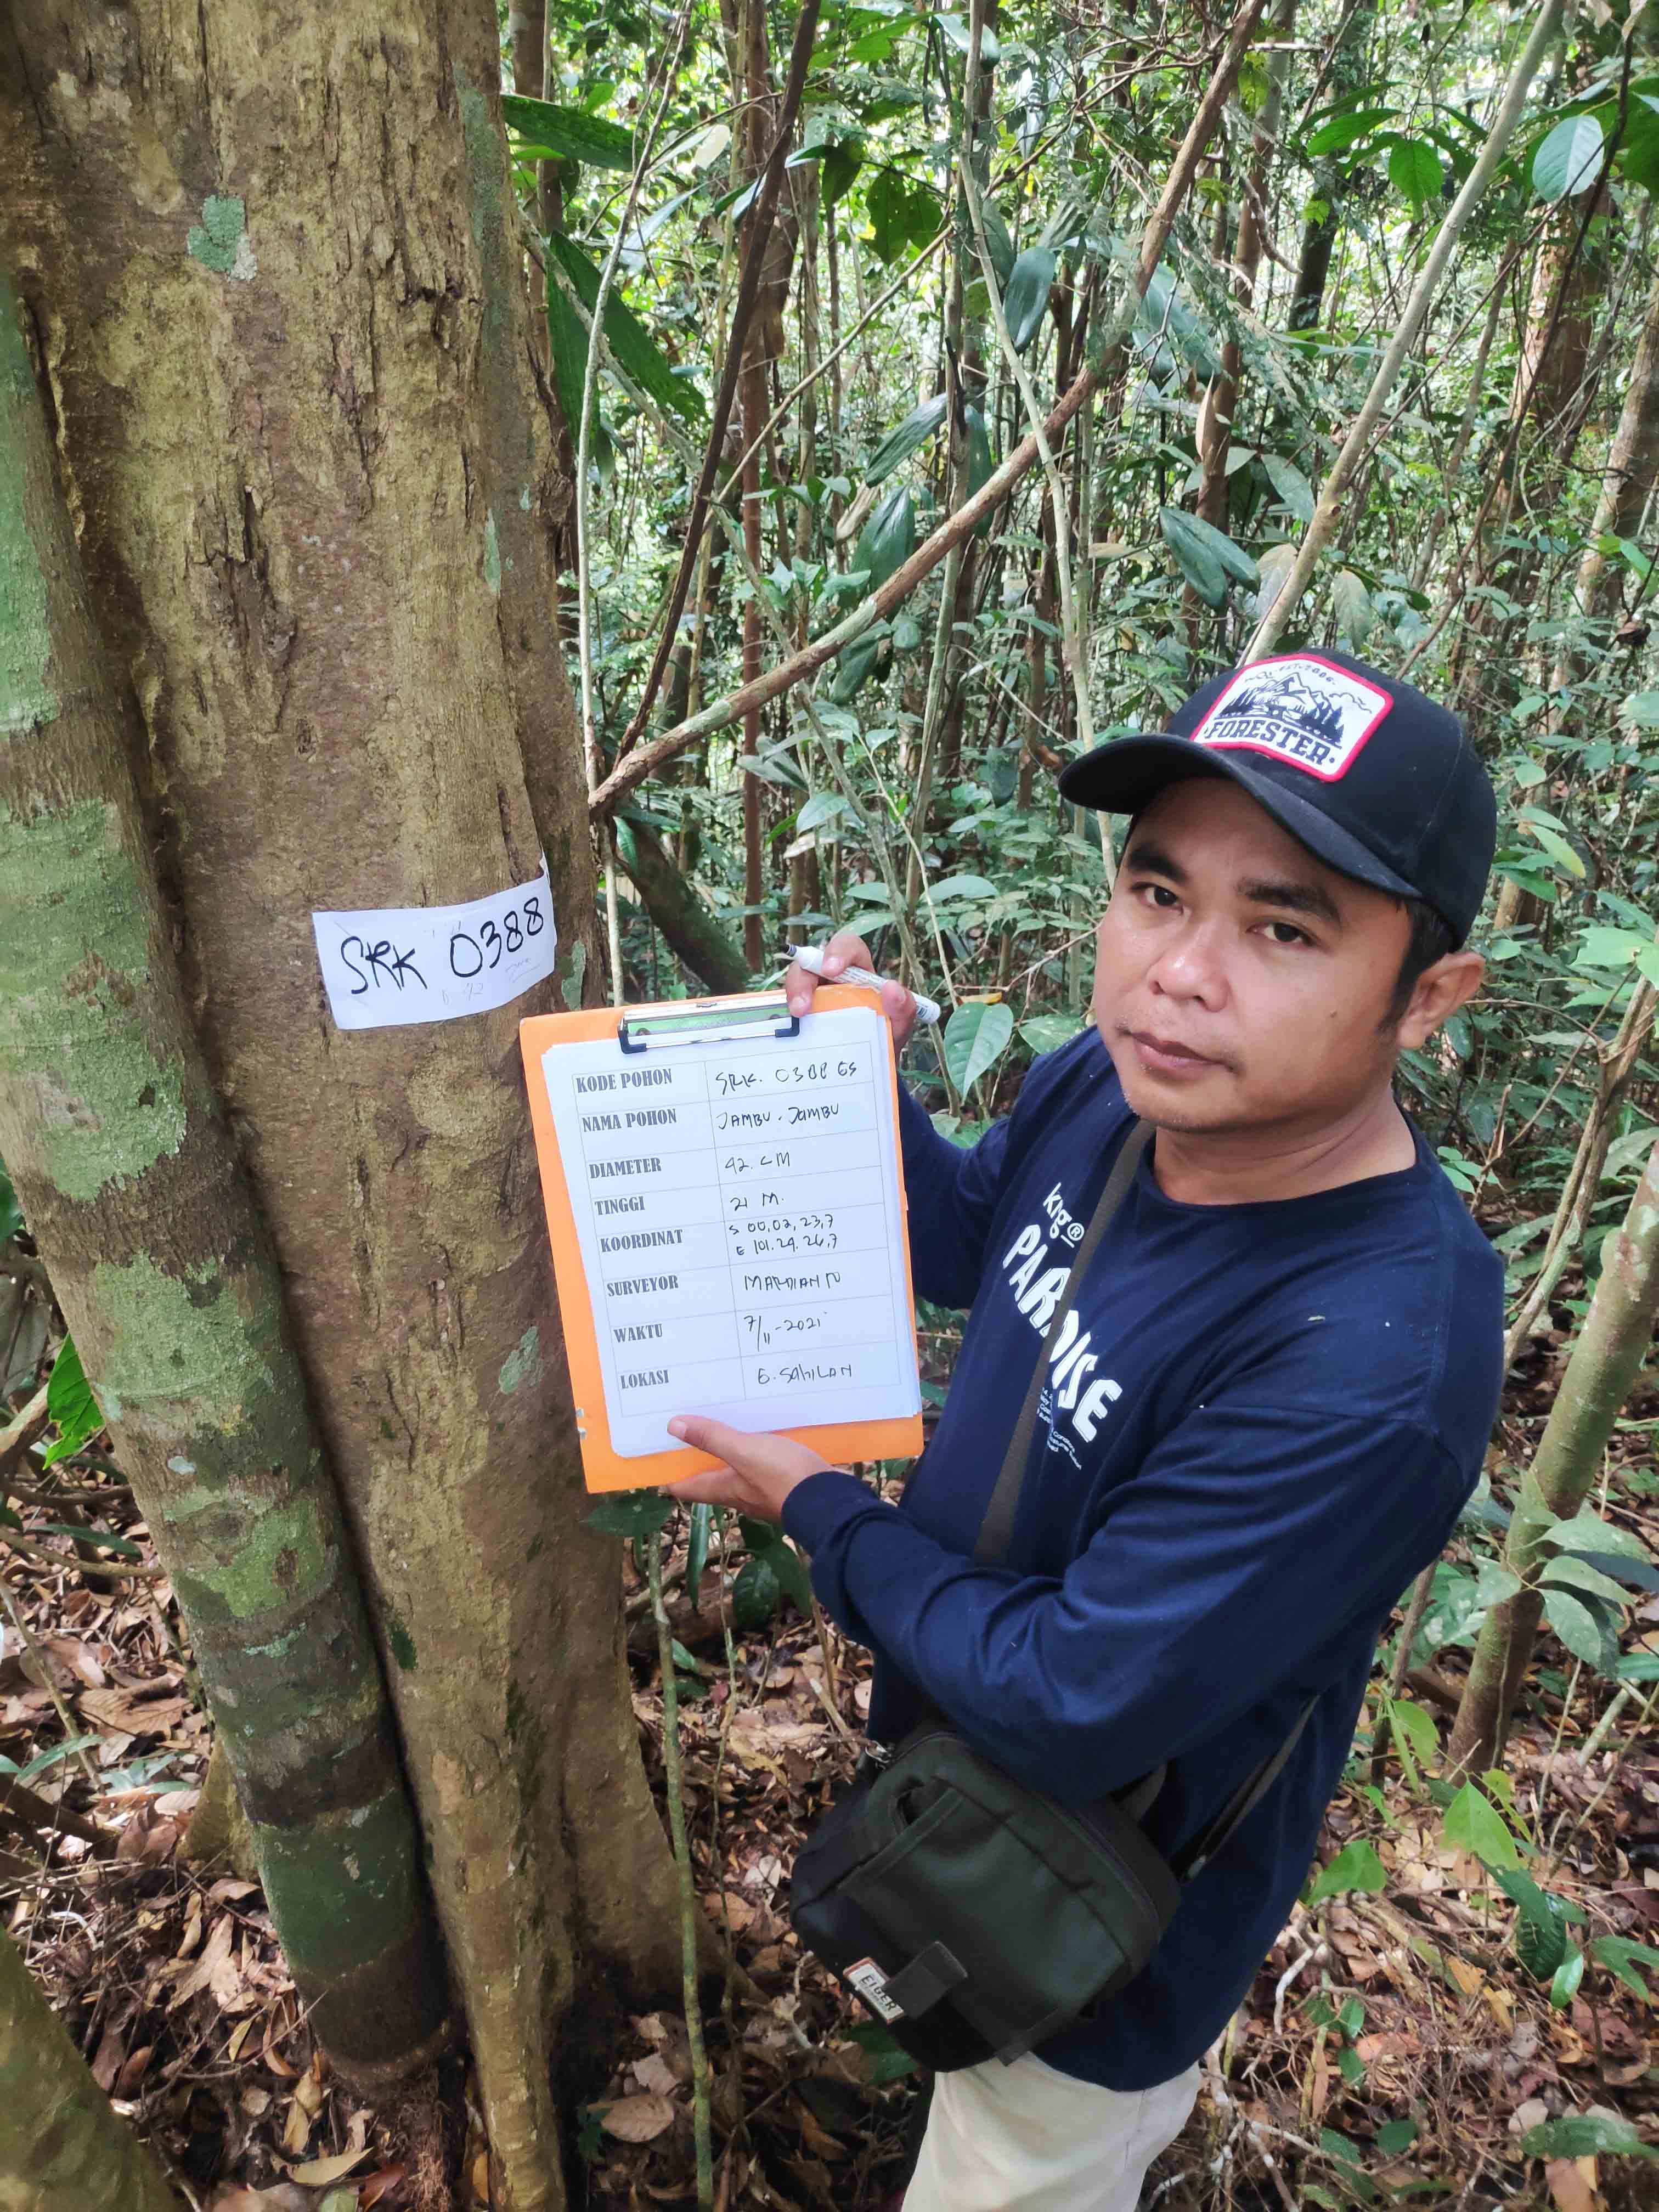 FORESTER
SRK 0388
KODE POHON SRK. 0388 GS
NAMA POHON JAMBU-JAMBU
DIAMETER 42. CM
TINGGI 21 M.
KOORDINAT S 00,02,23,7
E 101.24.26,7
SURVEYOR MARDIANTO
WAKTU 7/11-2021
LOKASI G. SAHILAN
klg®
PARADISE
EIGER